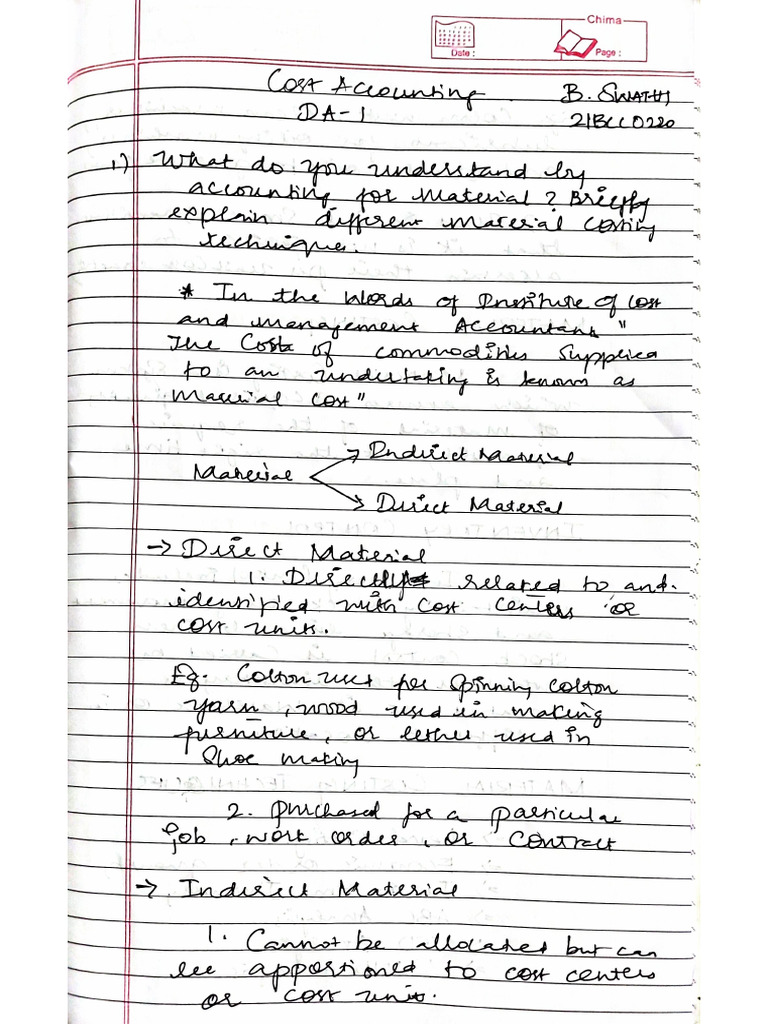 Chima
Date :
Page :
Cost Accounting
B. SWATHI
DA-1
21BCC0220
1.) What do you understand by
accounting for Material? Briefly
explain different Material Costing
technique.
* In the Words of Institute of Cost
and Management Accountant "
The Cost of commodities Supplied
to an undertaking is known as
Material cost"
Indirect Material
Material
Direct Material
→ Direct Material
1. Directly related to and
identified with cost centers or
cost units.
Eg. Cotton used for Spinning cotton
yarn, wood used in making
furniture, or lether used in
Shoe making
2. purchased for a particular
job, work order, or contract
→ Indirect Material
1. Cannot be allocated but can
be apportioned to cost centers
or cost units.